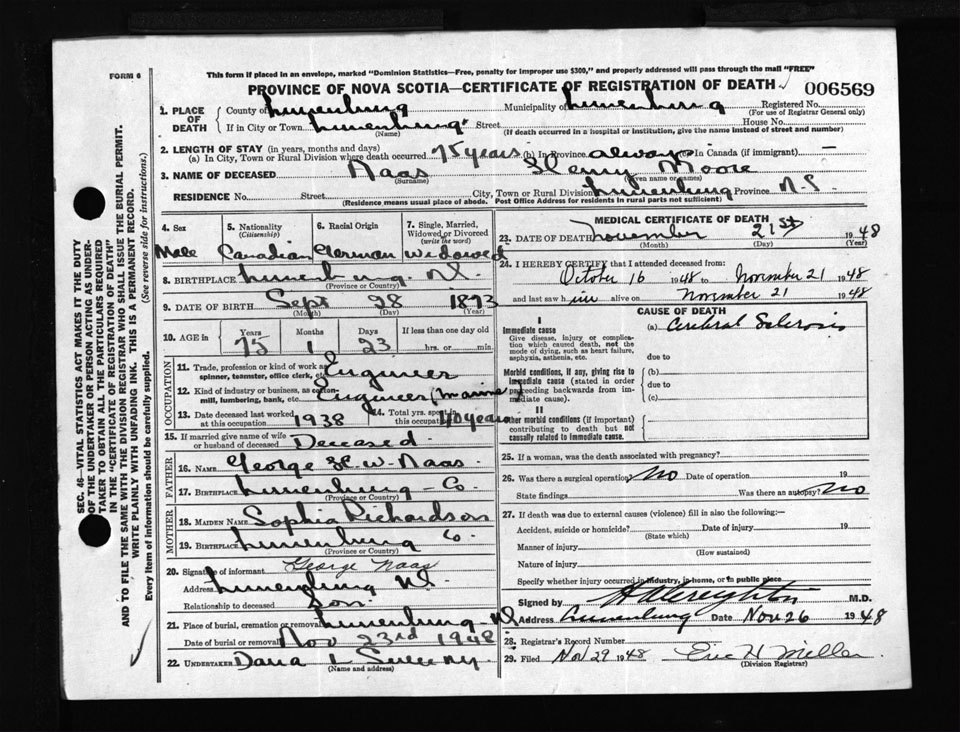 FORM 6
This form if placed in an envelope, marked "Dominion Statistics—Free, penalty for improper use $300," and properly addressed will pass through the mail "FREE"
PROVINCE OF NOVA SCOTIA—CERTIFICATE OF REGISTRATION OF DEATH 006569
1. PLACE OF DEATH County of Lunenburg Municipality of Lunenburg Registered No.
(For use of Registrar General only)
If in City or Town Lunenburg Street House No.
(Name) (If death occurred in a hospital or institution, give the name instead of street and number)
2. LENGTH OF STAY (in years, months and days)
(a) In City, Town or Rural Division where death occurred 75 years (b) In Province always (c) In Canada (if immigrant) —
3. NAME OF DECEASED Naas Henry Moore
(Surname) (Given name or names)
RESIDENCE No. Street City, Town or Rural Division Lunenburg Province N.S.
(Residence means usual place of abode. Post Office Address for residents in rural parts not sufficient)
4. Sex 5. Nationality (Citizenship) 6. Racial Origin 7. Single, Married, Widowed or Divorced (write the word)
Male Canadian German Widowed
8. BIRTHPLACE Lunenburg. N.S.
(Province or Country)
9. DATE OF BIRTH Sept 28 1873
(Month) (Day) (Year)
10. AGE in Years Months Days If less than one day old
75 1 23 hrs. or min.
OCCUPATION
11. Trade, profession or kind of work as spinner, teamster, office clerk, etc. Engineer
12. Kind of industry or business, as cotton-mill, lumbering, bank, etc. Engineer (marine)
13. Date deceased last worked at this occupation 1938 14. Total yrs. spent in this occupation 40 years
15. If married give name of wife or husband of deceased Deceased.
FATHER
16. NAME George H. W. Naas.
17. BIRTHPLACE Lunenburg - Co.
(Province or Country)
MOTHER
18. MAIDEN NAME Sophia Richardson
19. BIRTHPLACE Lunenburg Co.
(Province or Country)
20. Signature of informant George Naas
Address Lunenburg N.S.
Relationship to deceased Son.
21. Place of burial, cremation or removal Lunenburg - NS
Date of burial or removal Nov 23rd 1948
22. UNDERTAKER Dana L Sweeny.
(Name and address)
MEDICAL CERTIFICATE OF DEATH
23. DATE OF DEATH November 21st 1948
(Month) (Day) (Year)
24. I HEREBY CERTIFY that I attended deceased from:
October 16 1948 to November 21 1948
and last saw him alive on November 21 1948
CAUSE OF DEATH
I
Immediate cause (a) Cerebral Sclerosis
Give disease, injury or complication which caused death, not the mode of dying, such as heart failure, asphyxia, asthenia, etc. due to
Morbid conditions, if any, giving rise to immediate cause (stated in order proceeding backwards from immediate cause). (b)
due to
(c)
II
Other morbid conditions (if important) contributing to death but not causally related to immediate cause.
25. If a woman, was the death associated with pregnancy?
26. Was there a surgical operation No Date of operation 19
State findings Was there an autopsy? No
27. If death was due to external causes (violence) fill in also the following:—
Accident, suicide or homicide? Date of injury 19
(State which)
Manner of injury
(How sustained)
Nature of injury
Specify whether injury occurred in industry, in home, or in public place
Signed by H A Creighton M.D.
Address Lunenburg Date Nov 26 1948
28. Registrar's Record Number
29. Filed Nov 29 1948 Eric H Miller
(Division Registrar)
SEC. 46—VITAL STATISTICS ACT MAKES IT THE DUTY
OF THE UNDERTAKER OR PERSON ACTING AS UNDER-
TAKER TO OBTAIN ALL THE PARTICULARS REQUIRED
IN THE "CERTIFICATE OF REGISTRATION OF DEATH"
AND TO FILE THE SAME WITH THE DIVISION REGISTRAR WHO SHALL ISSUE THE BURIAL PERMIT.
WRITE PLAINLY WITH UNFADING INK. THIS IS A PERMANENT RECORD.
Every item of information should be carefully supplied. (See reverse side for instructions.)